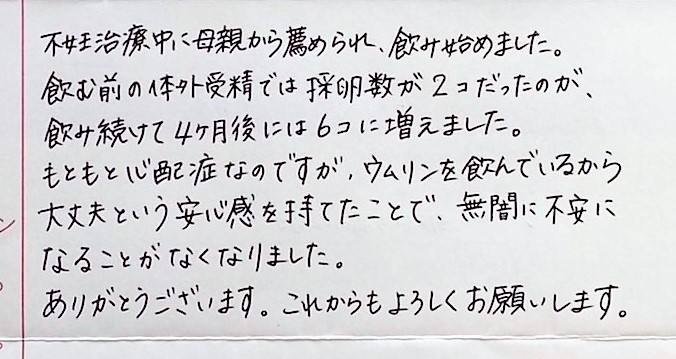 不妊治療中に母親から薦められ、飲み始めました。
飲む前の体外受精では採卵数が2コだったのが、
飲み続けて4ヶ月後には6コに増えました。
もともと心配症なのですが、ウムリンを飲んでいるから
大丈夫という安心感を持てたことで、無闇に不安に
なることがなくなりました。
ありがとうございます。これからもよろしくお願いします。